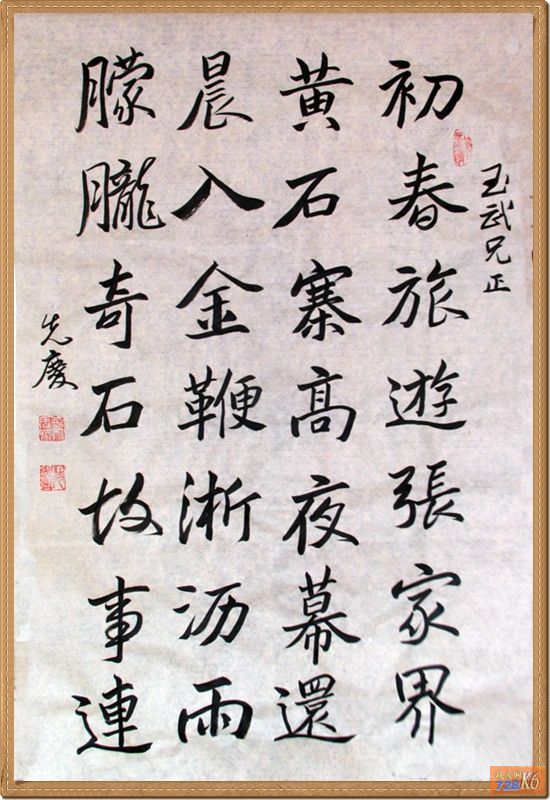 玉武兄正
初春旅遊張家界
黄石寨髙夜幕還
晨入金鞭淅沥雨
朦朧奇石故事連
先慶